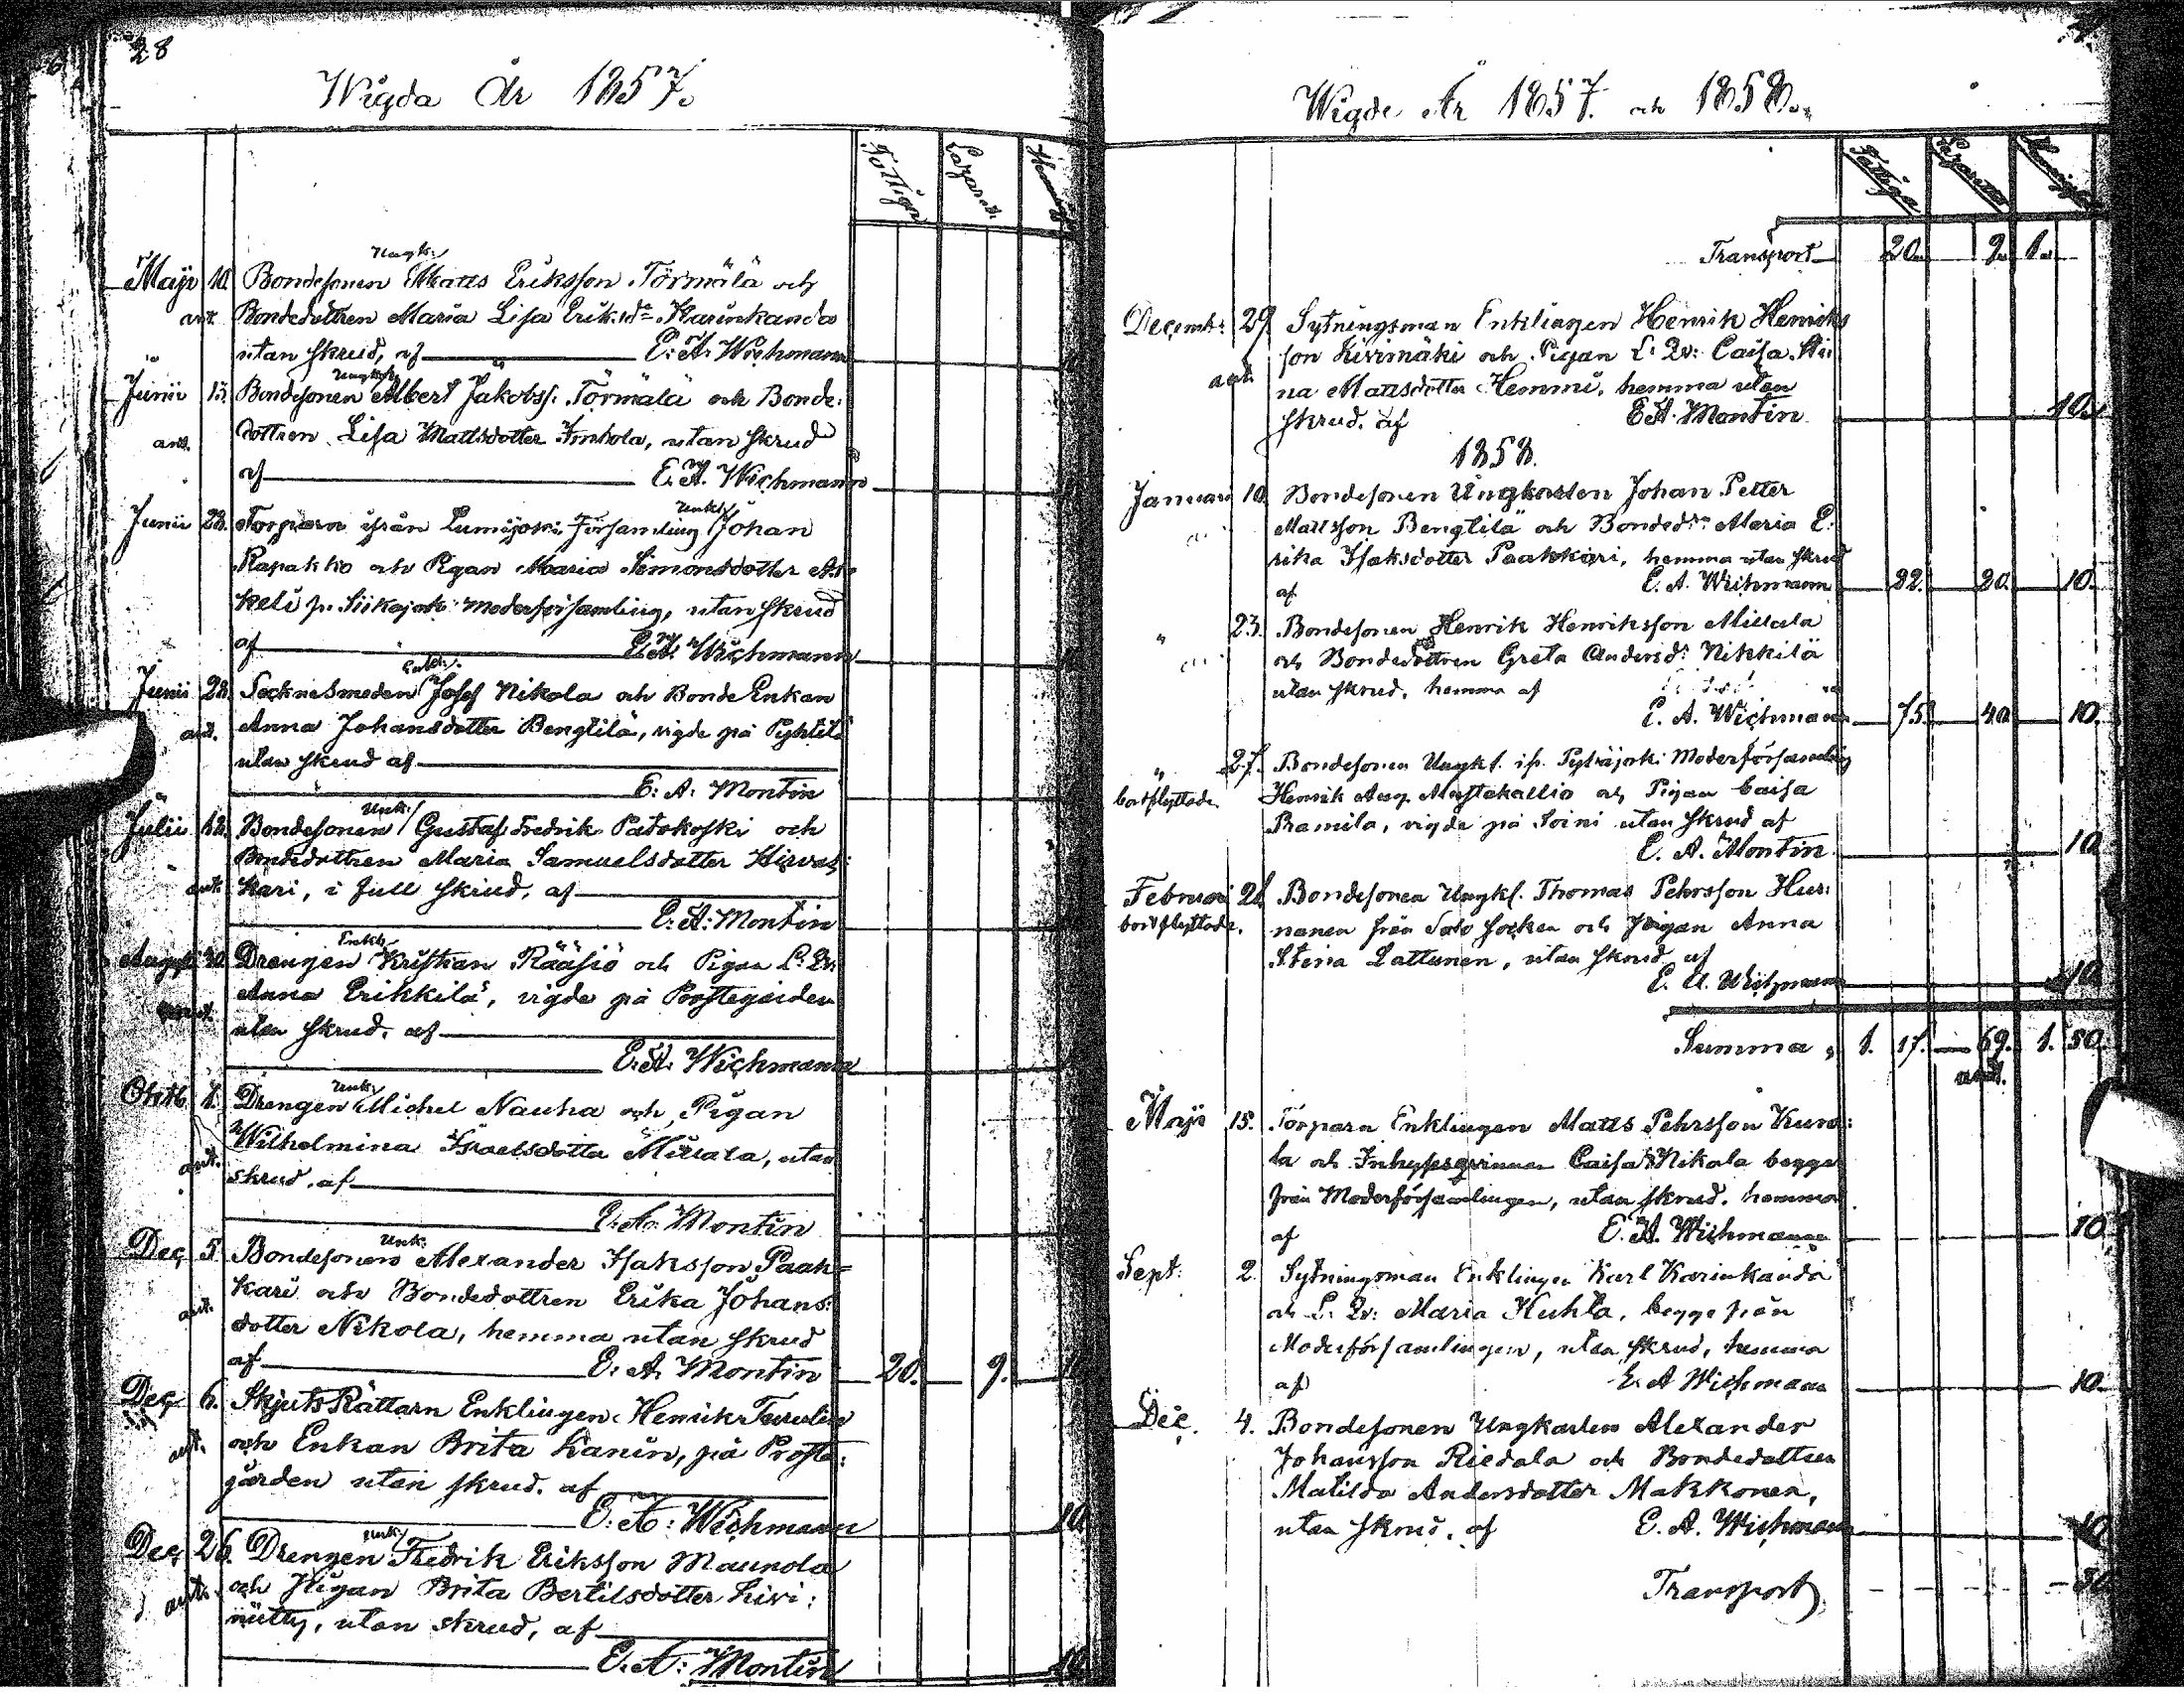 28
Wigda År 1857.
Fattigas
Lazarett
Ungk:
Maji 10. Bondesonen Matts Eriksson Törmälä och
ant. Bondedottren Maria Lisa Eriksdr Karinkanda
utan skrud, af E: A: Wichmann
Ungk:
Junii 13. Bondesonen Albert Jakobss: Törmälä och Bonde:
ant. dottren Lisa Mattsdotter Imhola, utan skrud
af E. A. Wichmann
Enkl:
Junii 28. Torparn ifrån Lumijoki Församling Johan
Rapakko och Pigan Maria Simonsdotter
keli fr. Siikajoki moderförsamling, utan skrud
af E. A. Wichmann
Enkl:
Junii 28. Socknesmeden Josef Nikola och Bonde Enkan
ant. Anna Johansdotter Bengtilä, vigde på Pyhtilä
utan skrud af
E: A: Montin
Unk:
Julii 12. Bondesonen Gustaf Fredrik Patokoski och
Bondedottren Maria Samuelsdotter Hirvas:
ant. kari, i full skrud, af
E: A: Montin
Enkl:
Augusti 30. Drengen Kristian Rääsiö och Pigan L: Qv:
Anna Erikkilä, vigde på Prostegården
utan skrud, af
E. A. Wichmann
Unk:
Oktb. 1. Drengen Michel Nauha och Pigan
Wilhelmina Israelsdotter Miilala, utan
ant. skrud, af
E. A. Montin
Unk:
Dec 5. Bondesonen Alexander Isaksson Paak=
kari och Bondedottren Erika Johans:
ant. dotter Nikola, hemma utan skrud
af E. A. Montin 20. 9. 10
Dec 6. Skjuts Rättarn Enklingen Henrik Turulin
ant. och Enkan Brita Kanin, på Proste:
gården utan skrud, af
E. A: Wichmann 10
Unk:
Dec 26. Drengen Fredrik Eriksson Maunola
ant. och Pigan Brita Bertilsdotter Kivi:
niitty, utan skrud, af
E. A: Montin 10
Wigde År 1857. och 1858.
Fattiga Lazarettet
Transport 20. 9. 1.
Decemb: 29. Sytningsman Enklingen Henrik Henriks
son Kivimäki och Pigan L: Qv: Caisa Sti:
ant. na Mattsdotter Hemmi, hemma utan
skrud, af E. A. Montin 10.
1858.
Januari 10. Bondesonen Ungkarlen Johan Petter
Mattsson Bengtilä och Bondedr Maria E:
rika Isaksdotter Paakkari, hemma utan skrud
af E. A. Wichmann 22. 20. 10.
" 23. Bondesonen Henrik Henriksson Miilala
och Bondedottren Greta Andersdr Nikkilä
utan skrud, hemma af
E. A. Wichmann 75. 40. 10.
" 27. Bondesonen Ungk. ifr. Pyhäjoki Moderförsamling
bortflyttade. Henrik Aug. Mustakallio och Pigan Caisa
Pramila, vigde på Soini utan skrud af
E. A. Montin 10
Februari 28 Bondesonen Ungk. Thomas Pehrsson Hur:
bortflyttade. nanen från Salo socken och Pigan Anna
Stina Lattunen, utan skrud af
E. A. Wichmann 10
Summa 1. 17. 69. 1. 50.
ant.
Maji 15. Torparn Enklingen Matts Pehrsson Kuro:
la och Inhysesqvinnan Caisa Nikola begge
från Moderförsamlingen, utan skrud, hemma
af E. A. Wichmann 10
Sept: 2. Sytningsman Enklingen Karl Karinkanda
och L: Qv: Maria Huhta, begge från
Moderförsamlingen, utan skrud, hemma
af E. A Wichmann 10.
Dec. 4. Bondesonen Ungkarlen Alexander
Johansson Riedala och Bondedottren
Matilda Andersdotter Makkonen,
utan skrud, af E. A. Wichmann 10
Transport 30